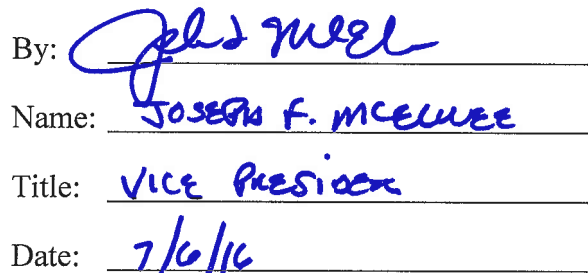 By:
Name: JOSEPH F. MCELWEE
Title: VICE PRESIDENT
Date: 7/6/16